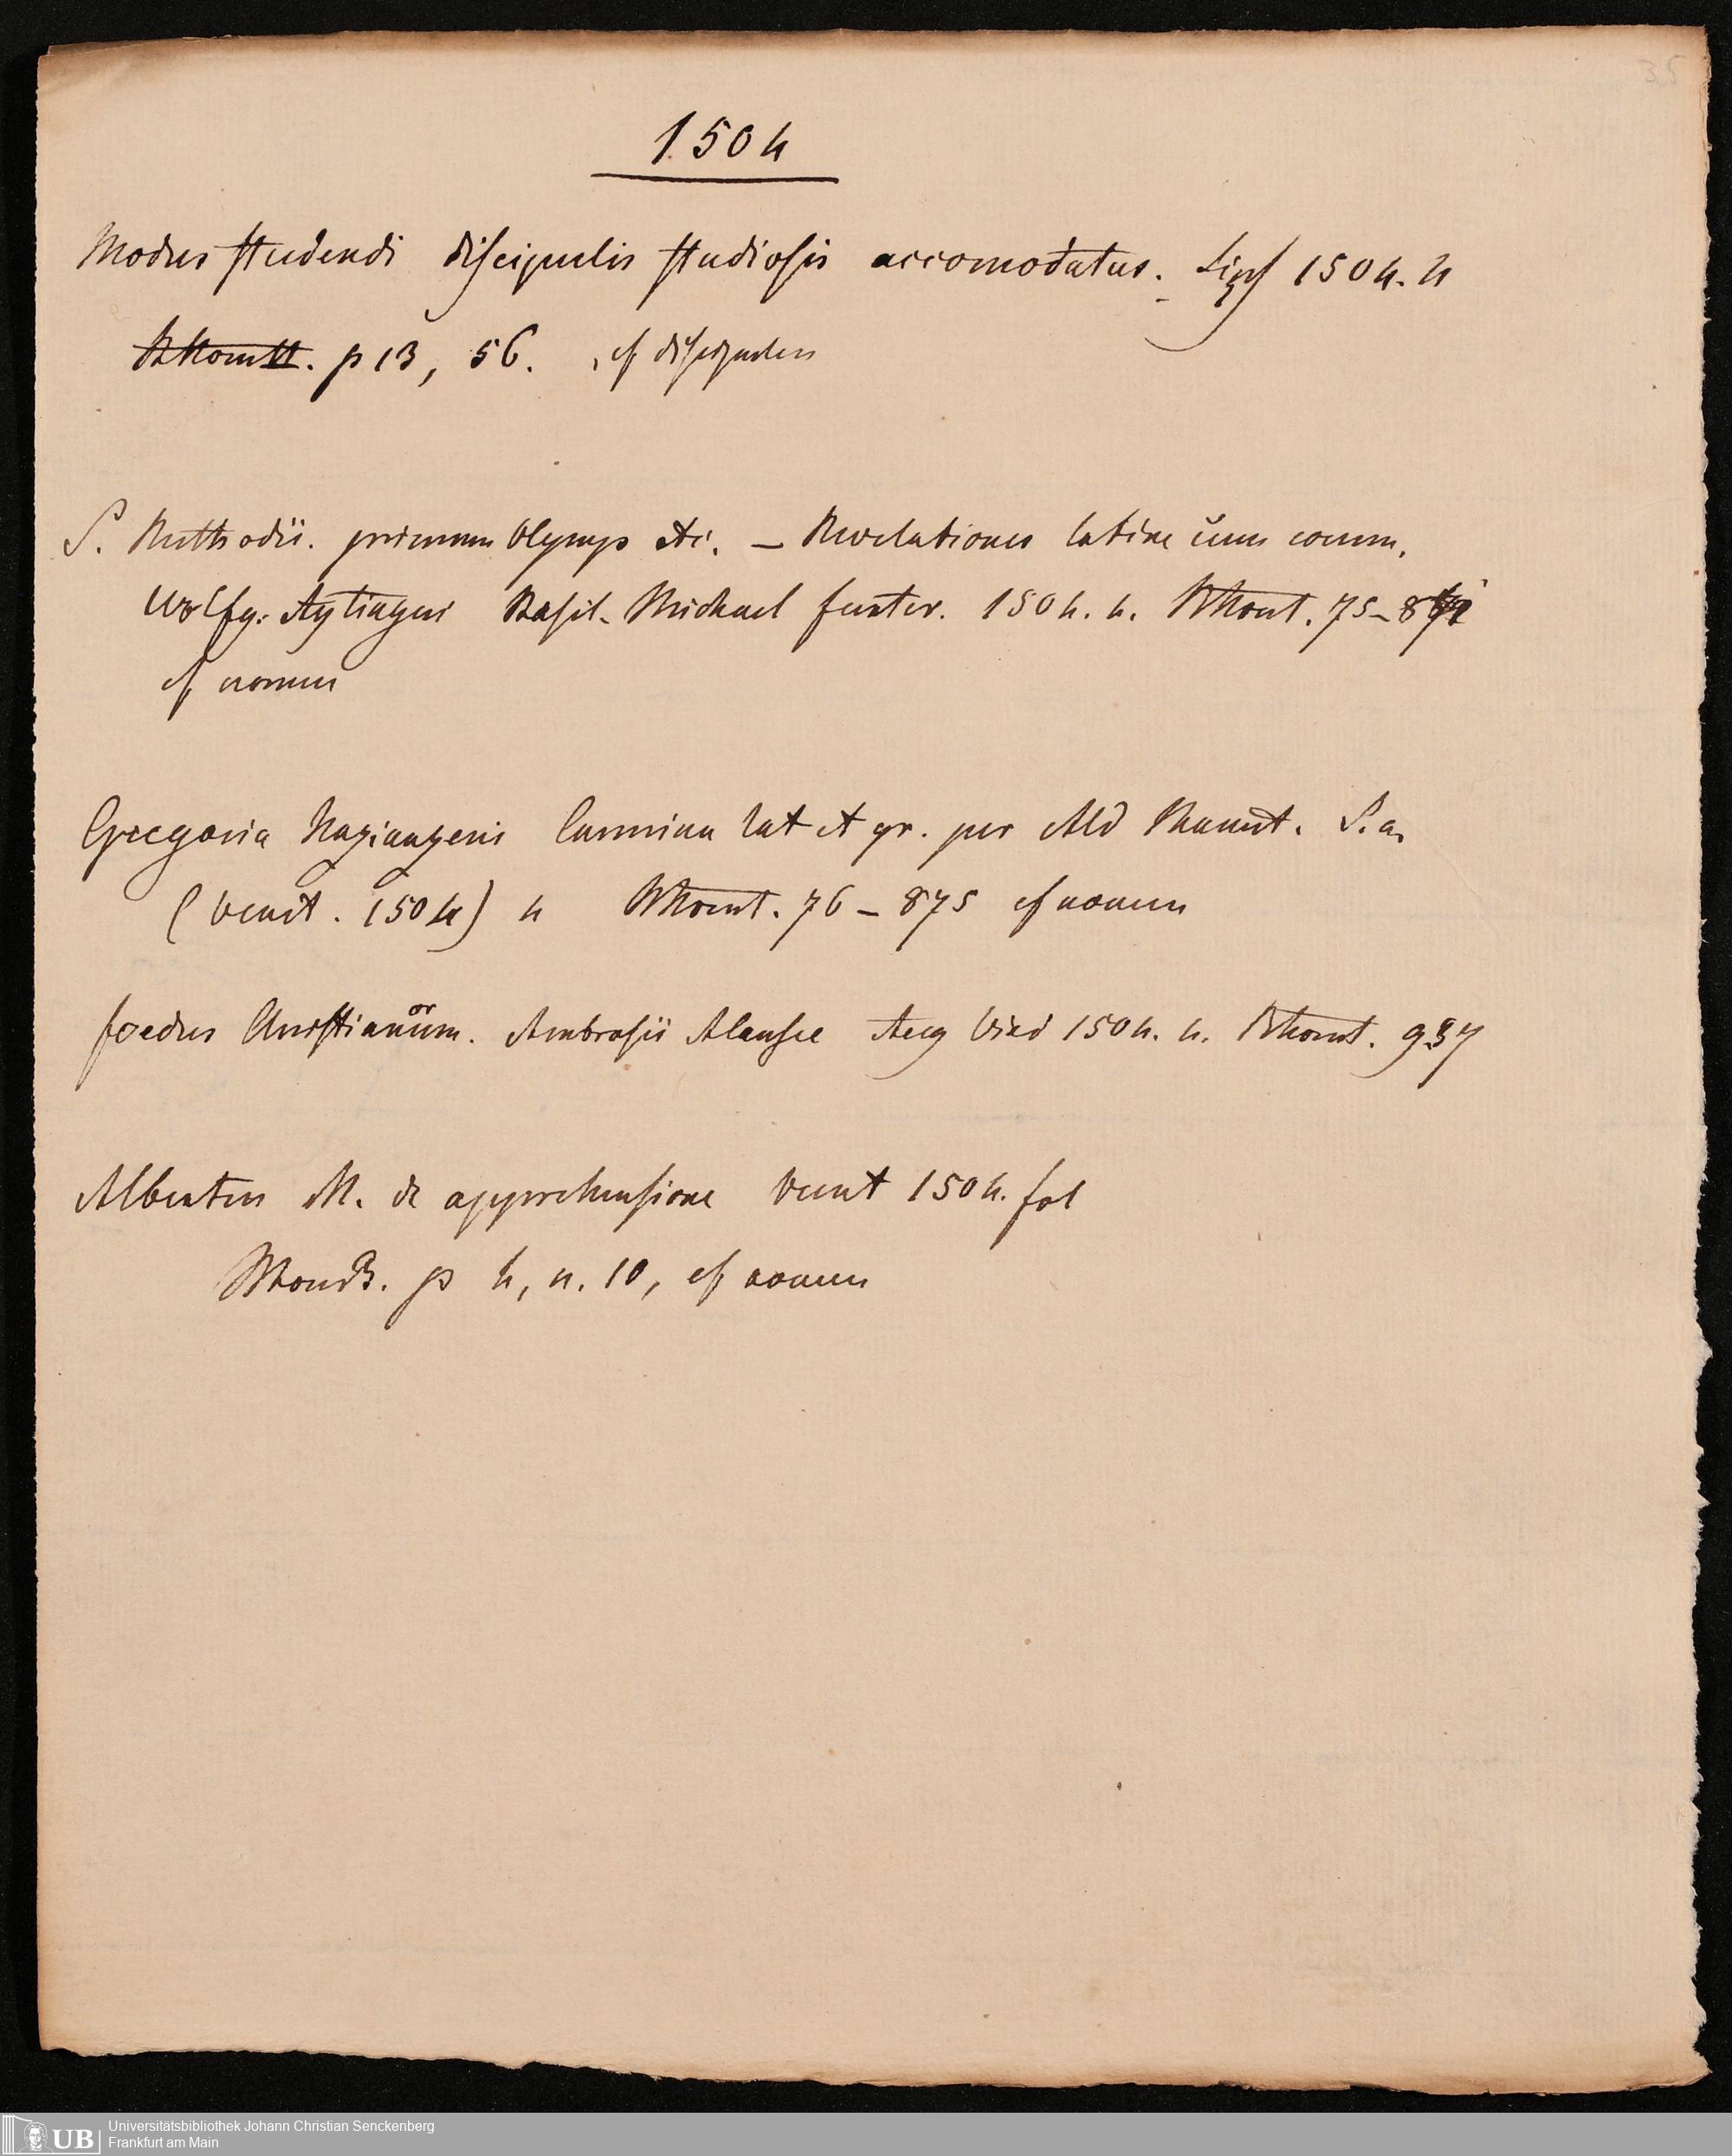 35
1504
Modus studendi discipulis studiosis accomodatus. Lips 1504. 4
p 13, 56. , cf discipulus
S. Methodii. primum Olymp etc. – Revelationes latine cum comm.
Wolfg: Aytinger Basil. Michael furter. 1504. 4. 75–
cf nomen
Gregoria Nazianzeni Carmina lat et gr. per Ald Manut. S. a.
(Venet. 1504) 4 76–875 cf nomen
foedus Christianorum. Ambrosii Alantsee Aug Vind 1504. 4. 937
Albertus M. de apprehensione Venet 1504. fol
p 4, n. 10, cf nomen
UB Universitätsbibliothek Johann Christian Senckenberg
Frankfurt am Main